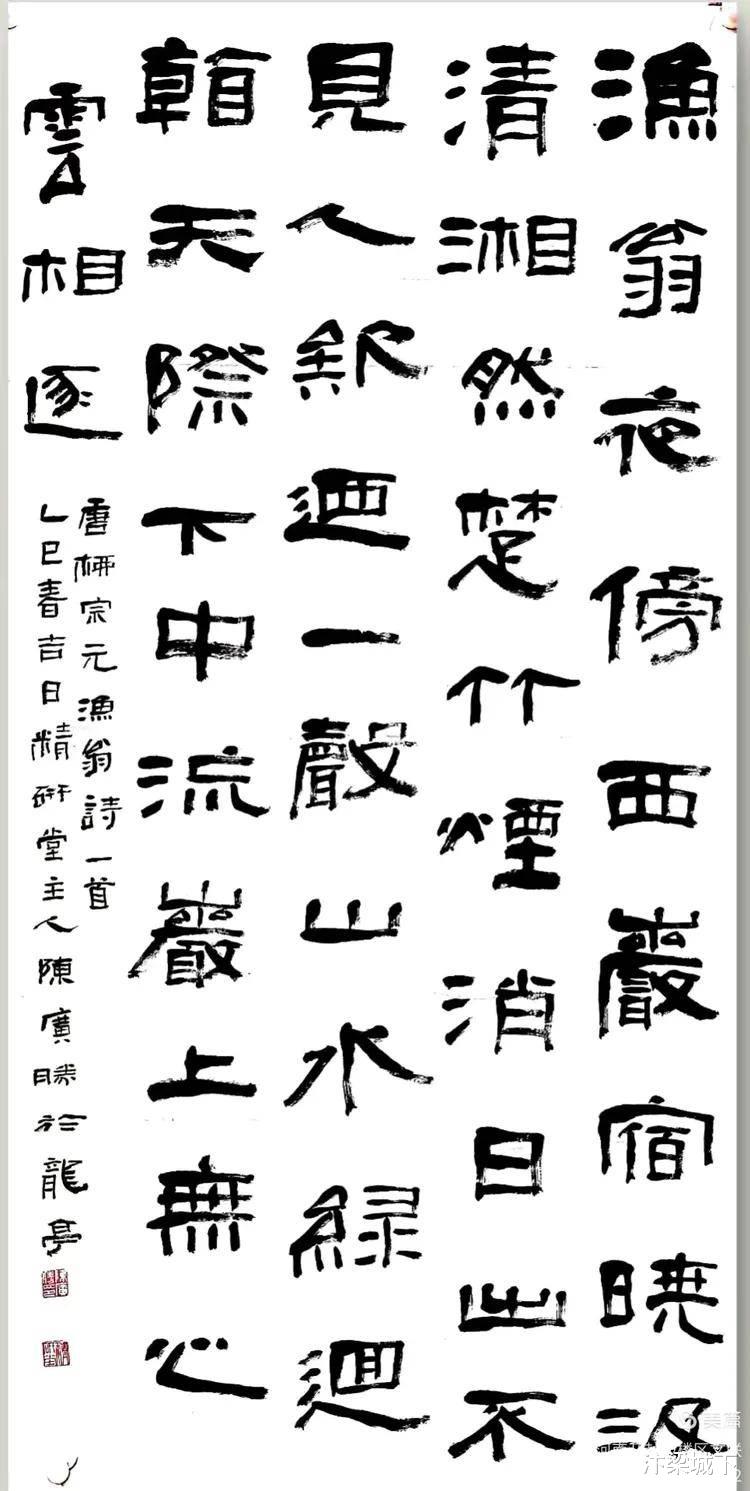 漁翁夜傍西巖宿曉汲
清湘然楚竹煙消日出不
見人欸迺一聲山水緑迴
看天際下中流巖上無心
雲相逐
唐柳宗元漁翁詩一首
乙巳春吉日精研堂主人陳廣勝於龍亭
美篇
汴梁城下